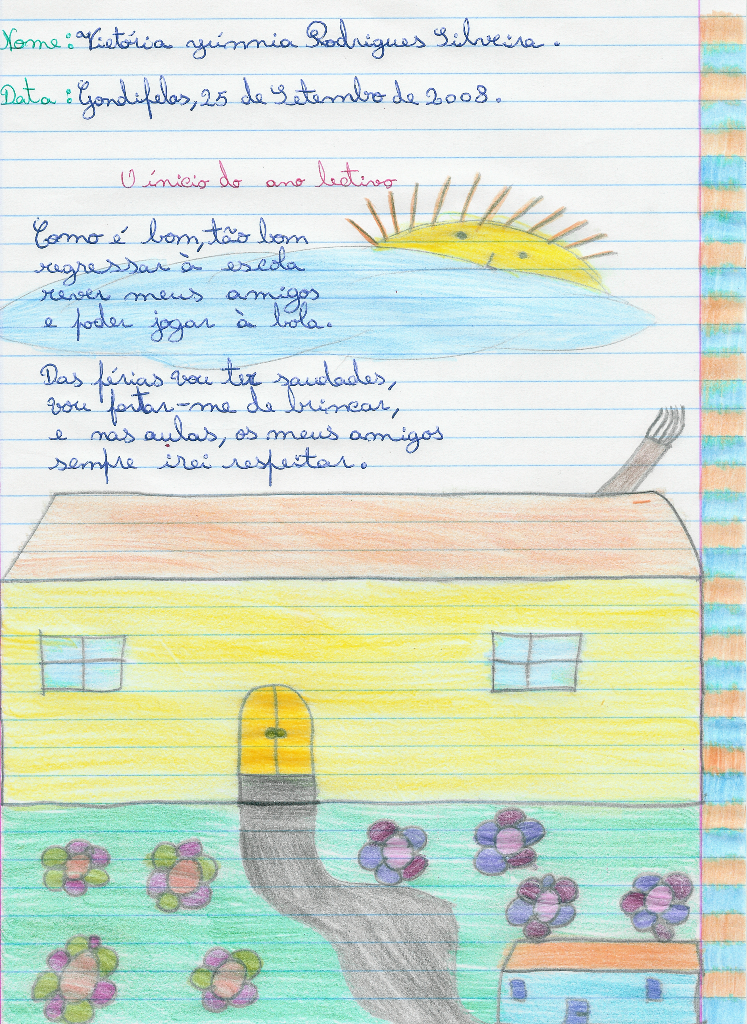 Nome: Victória yúnnia Rodrigues Silveira.
Data: Gondifelos, 25 de Setembo de 2008.
O ínicio do ano lectivo
Como é bom, tão bom
regressar à escola
rever meus amigos
e poder jogar à bola.
Das férias vou ter saudades,
vou fartar-me de brincar,
e nas aulas, os meus amigos
sempre irei respeitar.